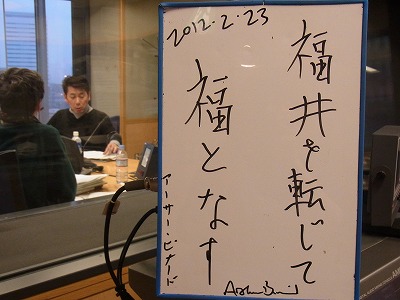 2012.2.23
福井を転じて
福となす
アーサー・ビナード